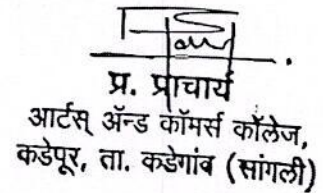 प्र. प्राचार्य
आर्टस् ॲन्ड कॉमर्स कॉलेज,
कडेपूर, ता. कडेगांव (सांगली)